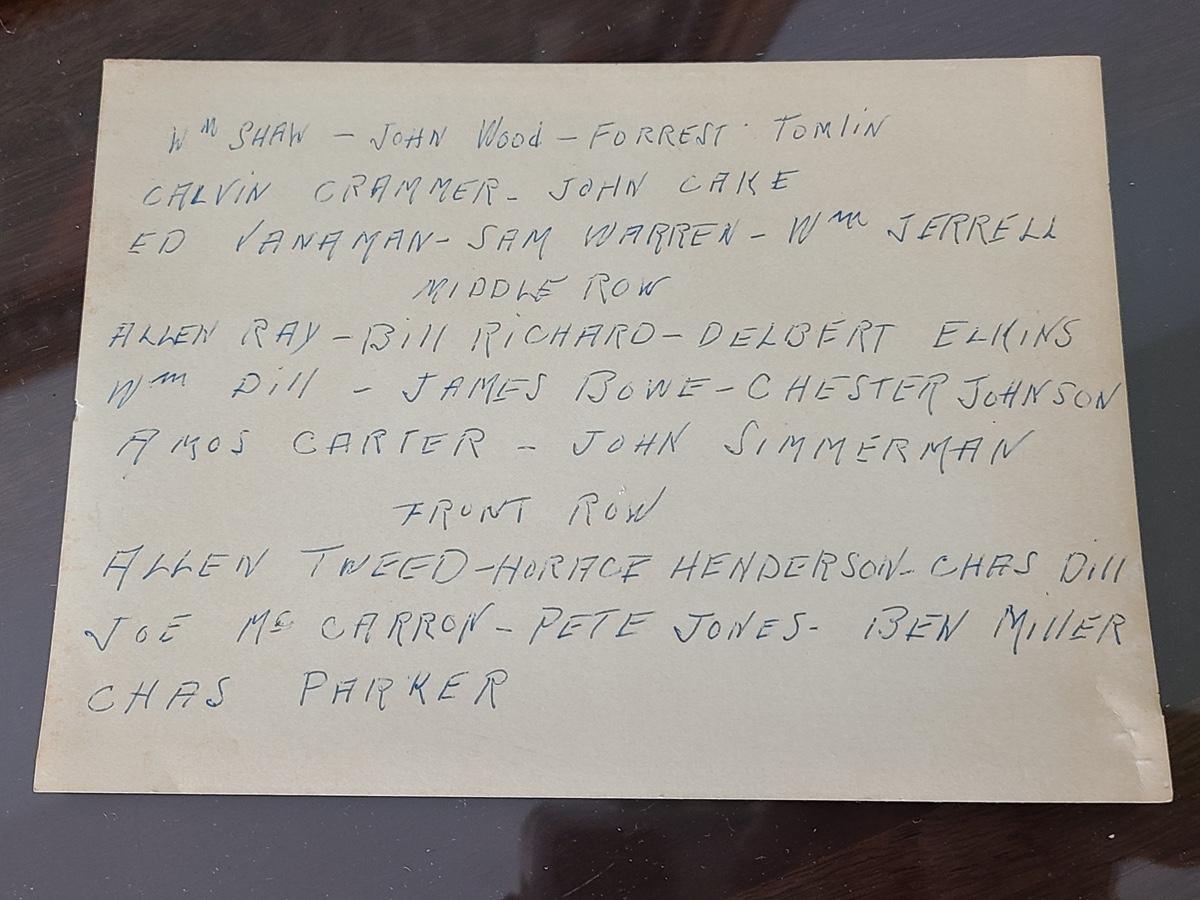 Wm SHAW - JOHN Wood - FORREST TOMlIN
CALVIN CRAMMER - JOHN CAKE
ED VANAMAN - SAM WARREN - Wm JERRELL
MIDDLE ROW
ALLEN RAY - Bill RICHARD - DELBERT ELKINS
Wm Dill - JAMES BOWE - CHESTER JOHNSON
AMOS CARTER - JOHN SIMMERMAN
FRONT ROW
ALLEN TWEED - HORACE HENDERSON - CHAS Dill
JOE Mc CARRON - PETE JONES - BEN MillER
CHAS PARKER